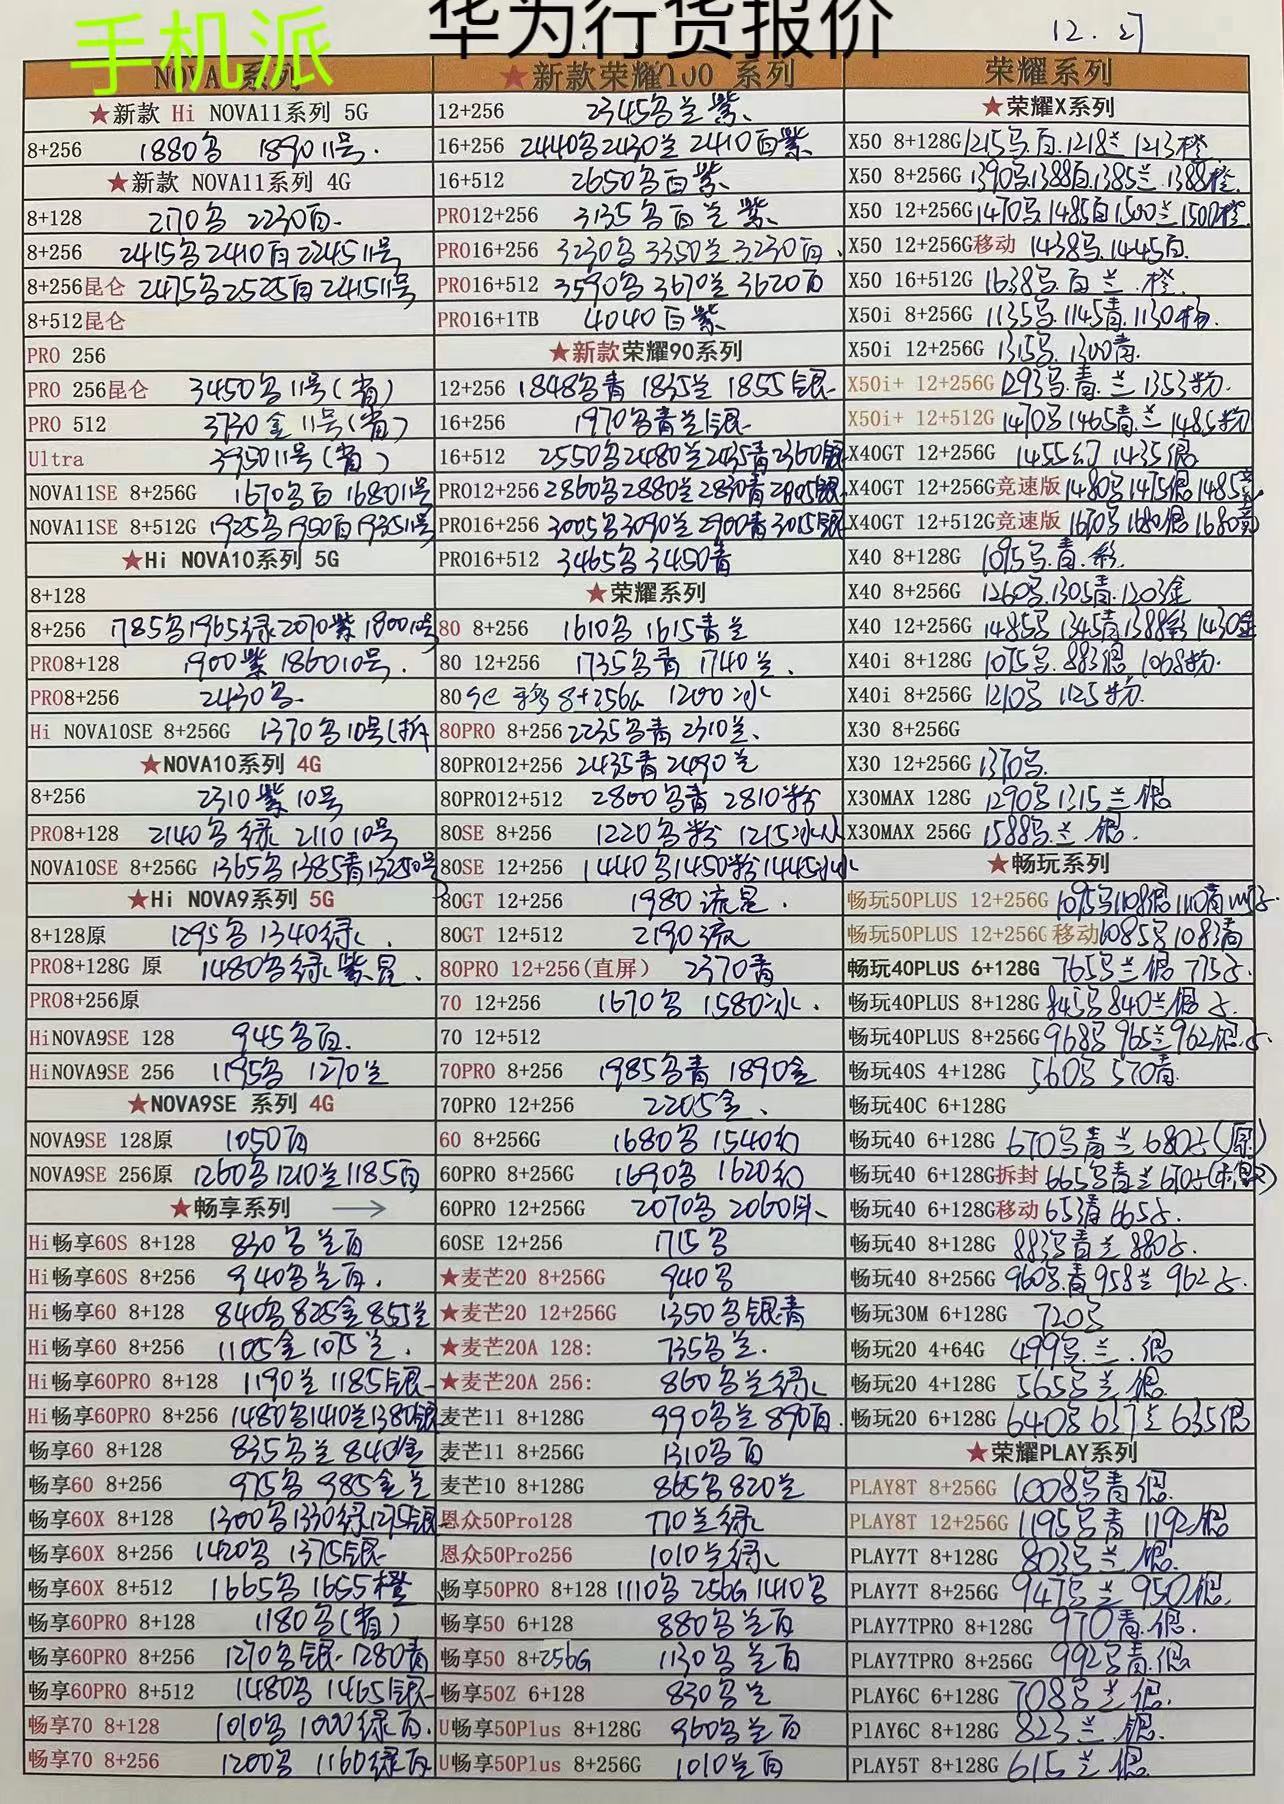 手机派
华为行货报价
12.27
NOVA 系列
★新款 Hi NOVA11系列 5G
8+256 1880名 1890 11号.
★新款 NOVA11系列 4G
8+128 2170名 2230白
8+256 2415名2410白2245 11号
8+256昆仑 2475名2525白2415 11号
8+512昆仑
PRO 256
PRO 256昆仑 3450名11号(省)
PRO 512 3730金 11号(省)
Ultra 3950 11号(省)
NOVA11SE 8+256G 1670名白 1680 11号
NOVA11SE 8+512G 1925名1950白1935 11号
★Hi NOVA10系列 5G
8+128
8+256 1785名1965绿2070紫1800 10号
PRO8+128 1900紫 1860 10号.
PRO8+256 2430名
Hi NOVA10SE 8+256G 1370名10号(拆
★NOVA10系列 4G
8+256 2310紫10号
PRO8+128 2140名绿 2110 10号
NOVA10SE 8+256G 1365名1385青1325 10号
★Hi NOVA9系列 5G
8+128原 1295名1340绿
PRO8+128G 原 1480名绿紫.星
PRO8+256原
HiNOVA9SE 128 945名白.
HiNOVA9SE 256 1195名 1270兰
★NOVA9SE 系列 4G
NOVA9SE 128原 1050白
NOVA9SE 256原 1260名1210兰1185白
★畅享系列 →
Hi畅享60S 8+128 830名兰白
Hi畅享60S 8+256 940名兰白.
Hi畅享60 8+128 840名825金855兰
Hi畅享60 8+256 1105金1075兰.
Hi畅享60PRO 8+128 1190兰1185银
Hi畅享60PRO 8+256 1480名1410兰1380银
畅享60 8+128 835名兰840金
畅享60 8+256 975名985金兰
畅享60X 8+128 1300名1330绿1275银
畅享60X 8+256 1420名 1375银
畅享60X 8+512 1665名1655橙
畅享60PRO 8+128 1180名(省)
畅享60PRO 8+256 1270名银1280青
畅享60PRO 8+512 1480名1465银
畅享70 8+128 1010名1000绿白.
畅享70 8+256 1200名1160绿白
★新款荣耀100 系列
12+256 2345名兰紫
16+256 2440名2430兰2410白紫
16+512 2650名白紫
PRO12+256 3135名白兰紫
PRO16+256 3230名3350兰3230白.
PRO16+512 3590名3670兰3620白
PRO16+1TB 4040白紫
★新款荣耀90系列
12+256 1848名青1835兰1855银
16+256 1970名青兰银
16+512 2550名2480兰2435青2360银
PRO12+256 2860名2880兰2830青2805银
PRO16+256 3005名3090兰2900青3015银
PRO16+512 3465名3450青
★荣耀系列
80 8+256 1610名1615青兰
80 12+256 1735名青1740兰.
80 8+256G 1200冰
80PRO 8+256 2235名青2310兰.
80PRO12+256 2435青2490兰
80PRO12+512 2800名青2810粉
80SE 8+256 1220名粉1215冰
80SE 12+256 1440名1450粉1445冰
80GT 12+256 1980流星.
80GT 12+512 2190流
80PRO 12+256(直屏) 2370青
70 12+256 1670名 1580冰.
70 12+512
70PRO 8+256 1985名青1890金
70PRO 12+256 2205金.
60 8+256G 1680名1540幻
60PRO 8+256G 1690名 1620幻
60PRO 12+256G 2070名2060
60SE 12+256 1715名
★麦芒20 8+256G 940名
★麦芒20 12+256G 1350名银青
★麦芒20A 128: 735名兰.
★麦芒20A 256: 860名兰绿
麦芒11 8+128G 990名兰890白.
麦芒11 8+256G 1310名白
麦芒10 8+128G 865名820兰
恩众50Pro128 770兰绿
恩众50Pro256 1010兰绿
畅享50PRO 8+128 1110名 256G 1410名
畅享50 6+128 880名兰白
畅享50 8+256G 1130名兰白
畅享50Z 6+128 830名兰
U畅享50Plus 8+128G 960名兰白
U畅享50Plus 8+256G 1010兰白
荣耀系列
★荣耀X系列
X50 8+128G 1215名.白.1218兰1213橙
X50 8+256G 1390名1388白.1385兰.1388橙
X50 12+256G 1470名1485白1500兰1500橙
X50 12+256G移动 1438名.1445白
X50 16+512G 1638名.白兰.橙.
X50i 8+256G 1135名.1145青.1130粉.
X50i 12+256G 1315名.1300青.
X50i+ 12+256G 1293名.青.兰1353粉.
X50i+ 12+512G 1470名1465青.兰1485粉
X40GT 12+256G 1455幻 1435银
X40GT 12+256G竞速版 1480名1475银1485
X40GT 12+512G竞速版 1670名1680银1680
X40 8+128G 1095名.青.彩.
X40 8+256G 1260名.1305青.1203金
X40 12+256G 1485名1345青1388彩1430金
X40i 8+128G 1075名.883银1068粉.
X40i 8+256G 1210名 1125粉.
X30 8+256G
X30 12+256G 1370名.
X30MAX 128G 1290名1315兰银
X30MAX 256G 1588名.兰.银.
★畅玩系列
畅玩50PLUS 12+256G 1095名1108银1110青
畅玩50PLUS 12+256G 移动 1085名1083青
畅玩40PLUS 6+128G 765名兰银775
畅玩40PLUS 8+128G 845名840兰银
畅玩40PLUS 8+256G 968名965兰962银
畅玩40S 4+128G 560名570青
畅玩40C 6+128G
畅玩40 6+128G 670名青兰680(原)
畅玩40 6+128G拆封 665名青兰670
畅玩40 6+128G移动 653青665
畅玩40 8+128G 883名青兰880
畅玩40 8+256G 960名.青958兰962
畅玩30M 6+128G 720名
畅玩20 4+64G 499名.兰.银
畅玩20 4+128G 565名兰银.
畅玩20 6+128G 640名637兰635银
★荣耀PLAY系列
PLAY8T 8+256G 1008名青银.
PLAY8T 12+256G 1195名青1192银
PLAY7T 8+128G 803名兰银.
PLAY7T 8+256G 947名兰950银.
PLAY7TPRO 8+128G 970青.银.
PLAY7TPRO 8+256G 992名青.银
PLAY6C 6+128G 708名兰银.
PlAY6C 8+128G 823兰.银.
PLAY5T 8+128G 615兰银